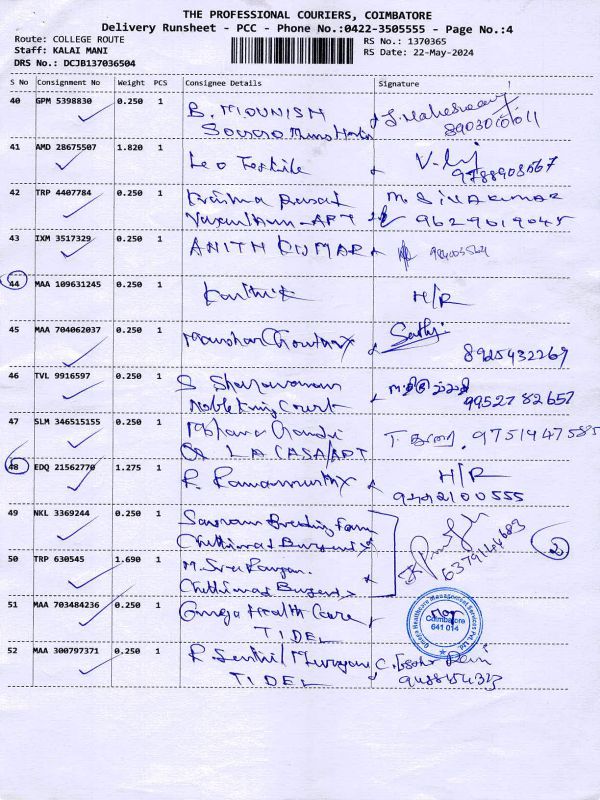 THE PROFESSIONAL COURIERS, COIMBATORE
Delivery Runsheet - PCC - Phone No.:0422-3505555 - Page No.:4
Route: COLLEGE ROUTE
Staff: KALAI MANI
DRS No.: DCJB137036504
RS No.: 1370365
RS Date: 22-May-2024
S No Consignment No Weight PCS Consignee Details Signature
40 GPM 5398830 0.250 1 B. MOUNISH
41 AMD 28675507 1.820 1 Leo Textile
42 TRP 4407784 0.250 1 Krishna Prasad M. SIVAKUMAR
APT 9629619045
43 IXM 3517329 0.250 1 ANITH KUMAR
44 MAA 109631245 0.250 1 Karthik H/R
45 MAA 704062037 0.250 1 Manohar Sathji
8925432269
46 TVL 9916597 0.250 1 S Sharavanan
Noble King Court 9952782657
47 SLM 346515155 0.250 1 9751447585
LA CASA APT
48 EDQ 21562770 1.275 1 R. Ramamurthy H/R
9442100555
49 NKL 3369244 0.250 1 Farm
50 TRP 630545 1.690 1 M. Sree 6379144683
2
51 MAA 703484236 0.250 1 Omega Health Care
TIDEL
Omega Healthcare Management Services Pvt. Ltd.
Coimbatore
641 014
52 MAA 300797371 0.250 1 R Senthil Murugan
TIDEL